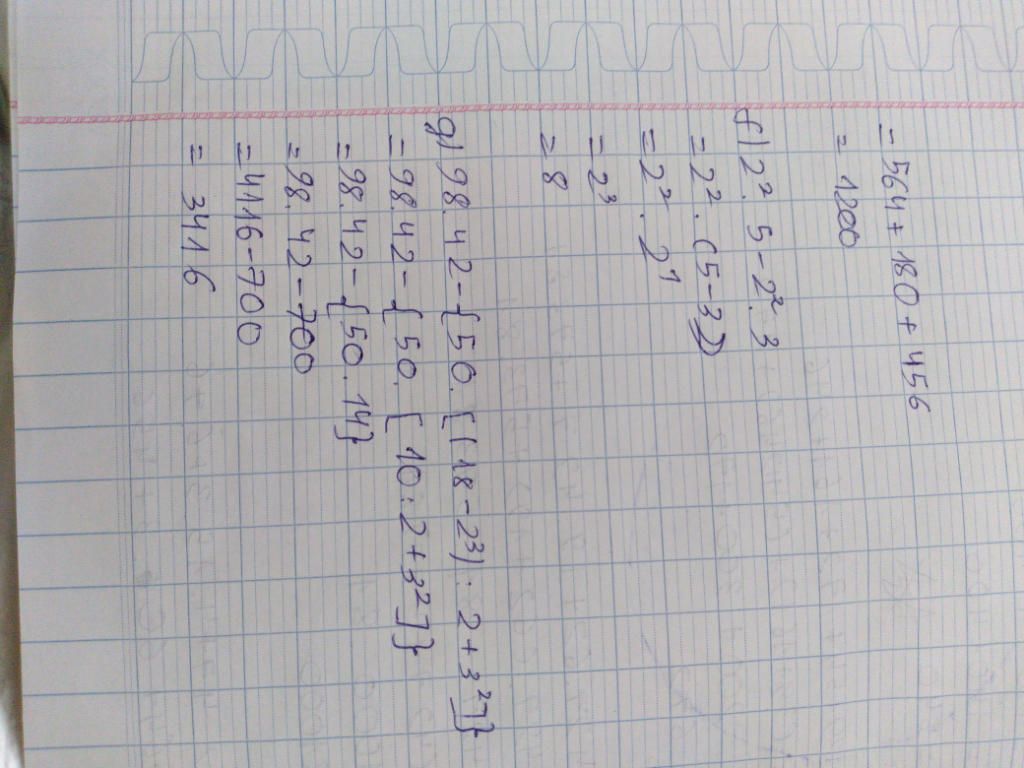 = 564 + 180 + 456
= 1200
f) 2². 5 - 2². 3
= 2². (5-3)
= 2². 2¹
= 2³
= 8
g) 98. 42 - {50. [(18 - 2³) : 2 + 3²]}
= 98. 42 - {50. [10 : 2 + 3²]}
= 98. 42 - {50. 14}
= 98. 42 - 700
= 4116 - 700
= 3416